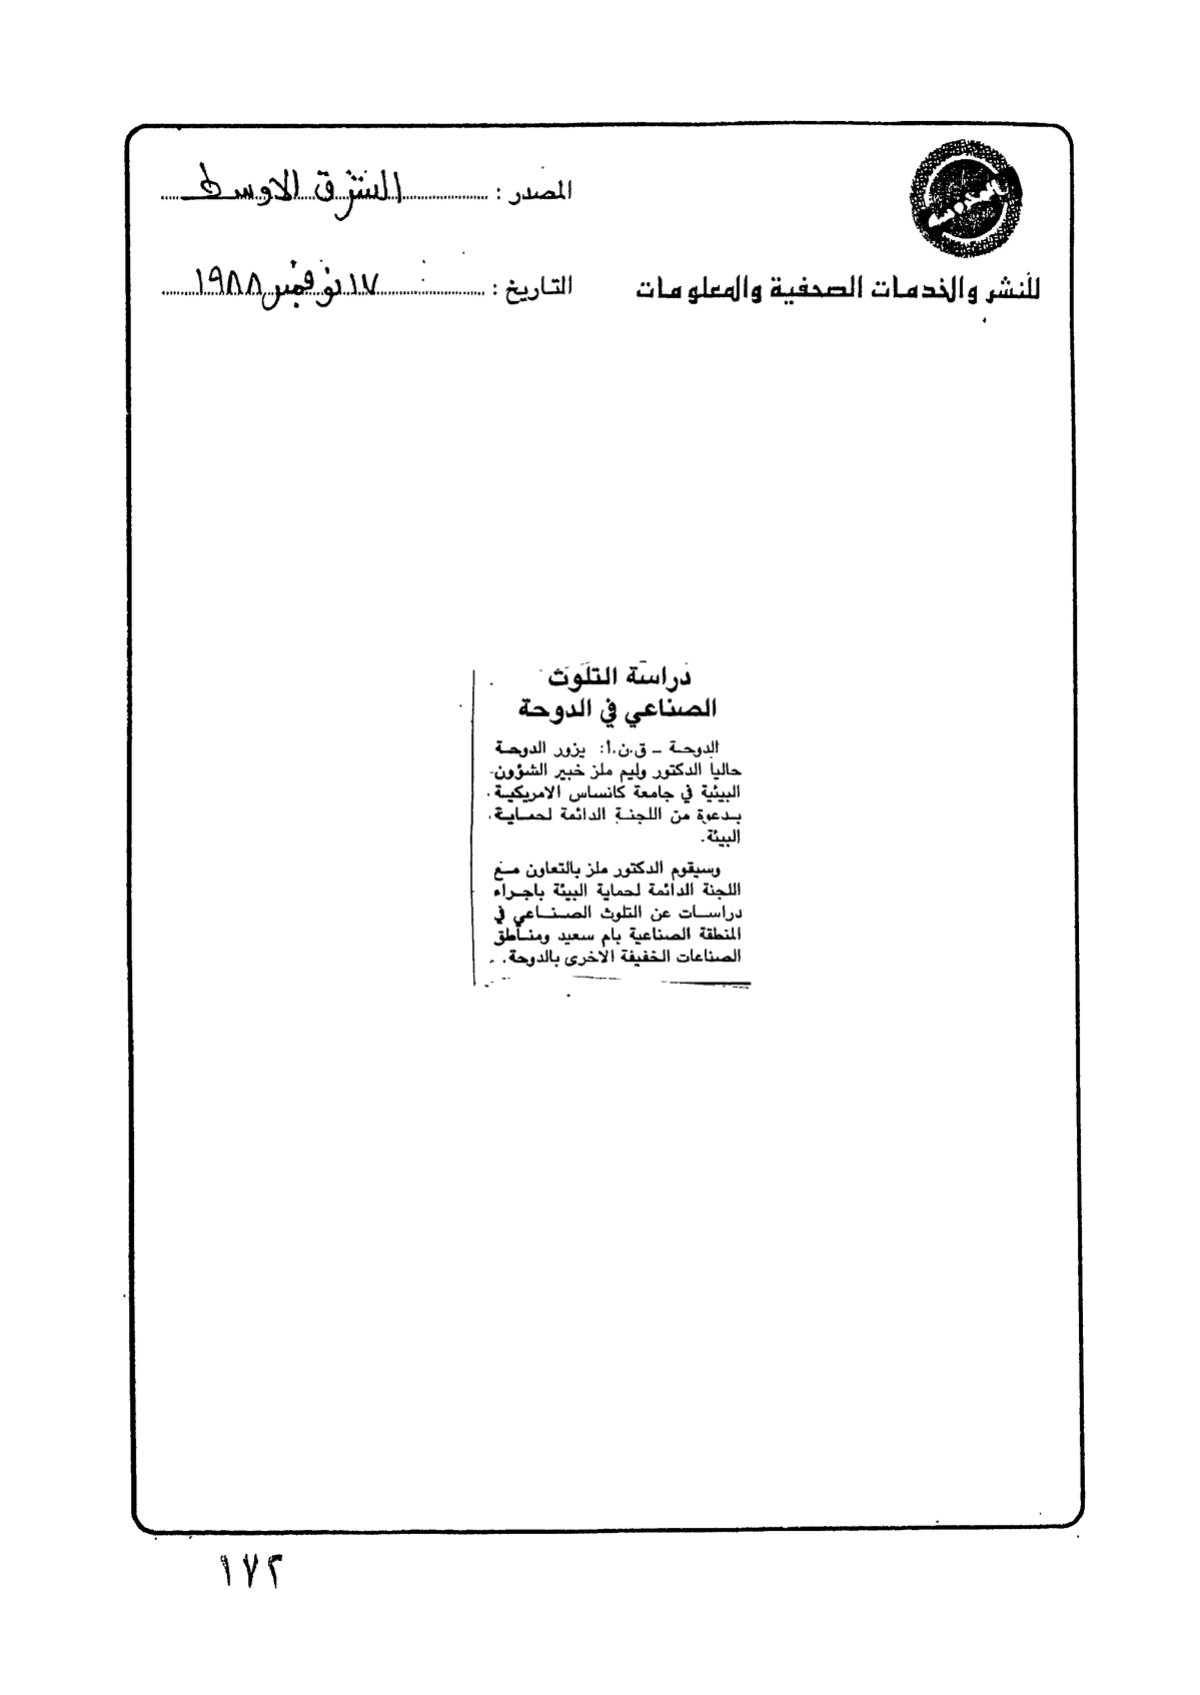 المصدر : الشرق الاوسط
للنشر والخدمات الصحفية والمعلومات
التاريخ : ١٧ نوفمبر ١٩٨٨
دراسة التلوث
الصناعي في الدوحة
الدوحة - ق.ن.أ: يزور الدوحة
حاليا الدكتور وليم ملز خبير الشؤون
البيئية في جامعة كانساس الامريكية
بدعوة من اللجنة الدائمة لحماية
البيئة.
وسيقوم الدكتور ملز بالتعاون مع
اللجنة الدائمة لحماية البيئة باجراء
دراسات عن التلوث الصناعي في
المنطقة الصناعية بام سعيد ومناطق
الصناعات الخفيفة الاخرى بالدوحة.
١٧٢